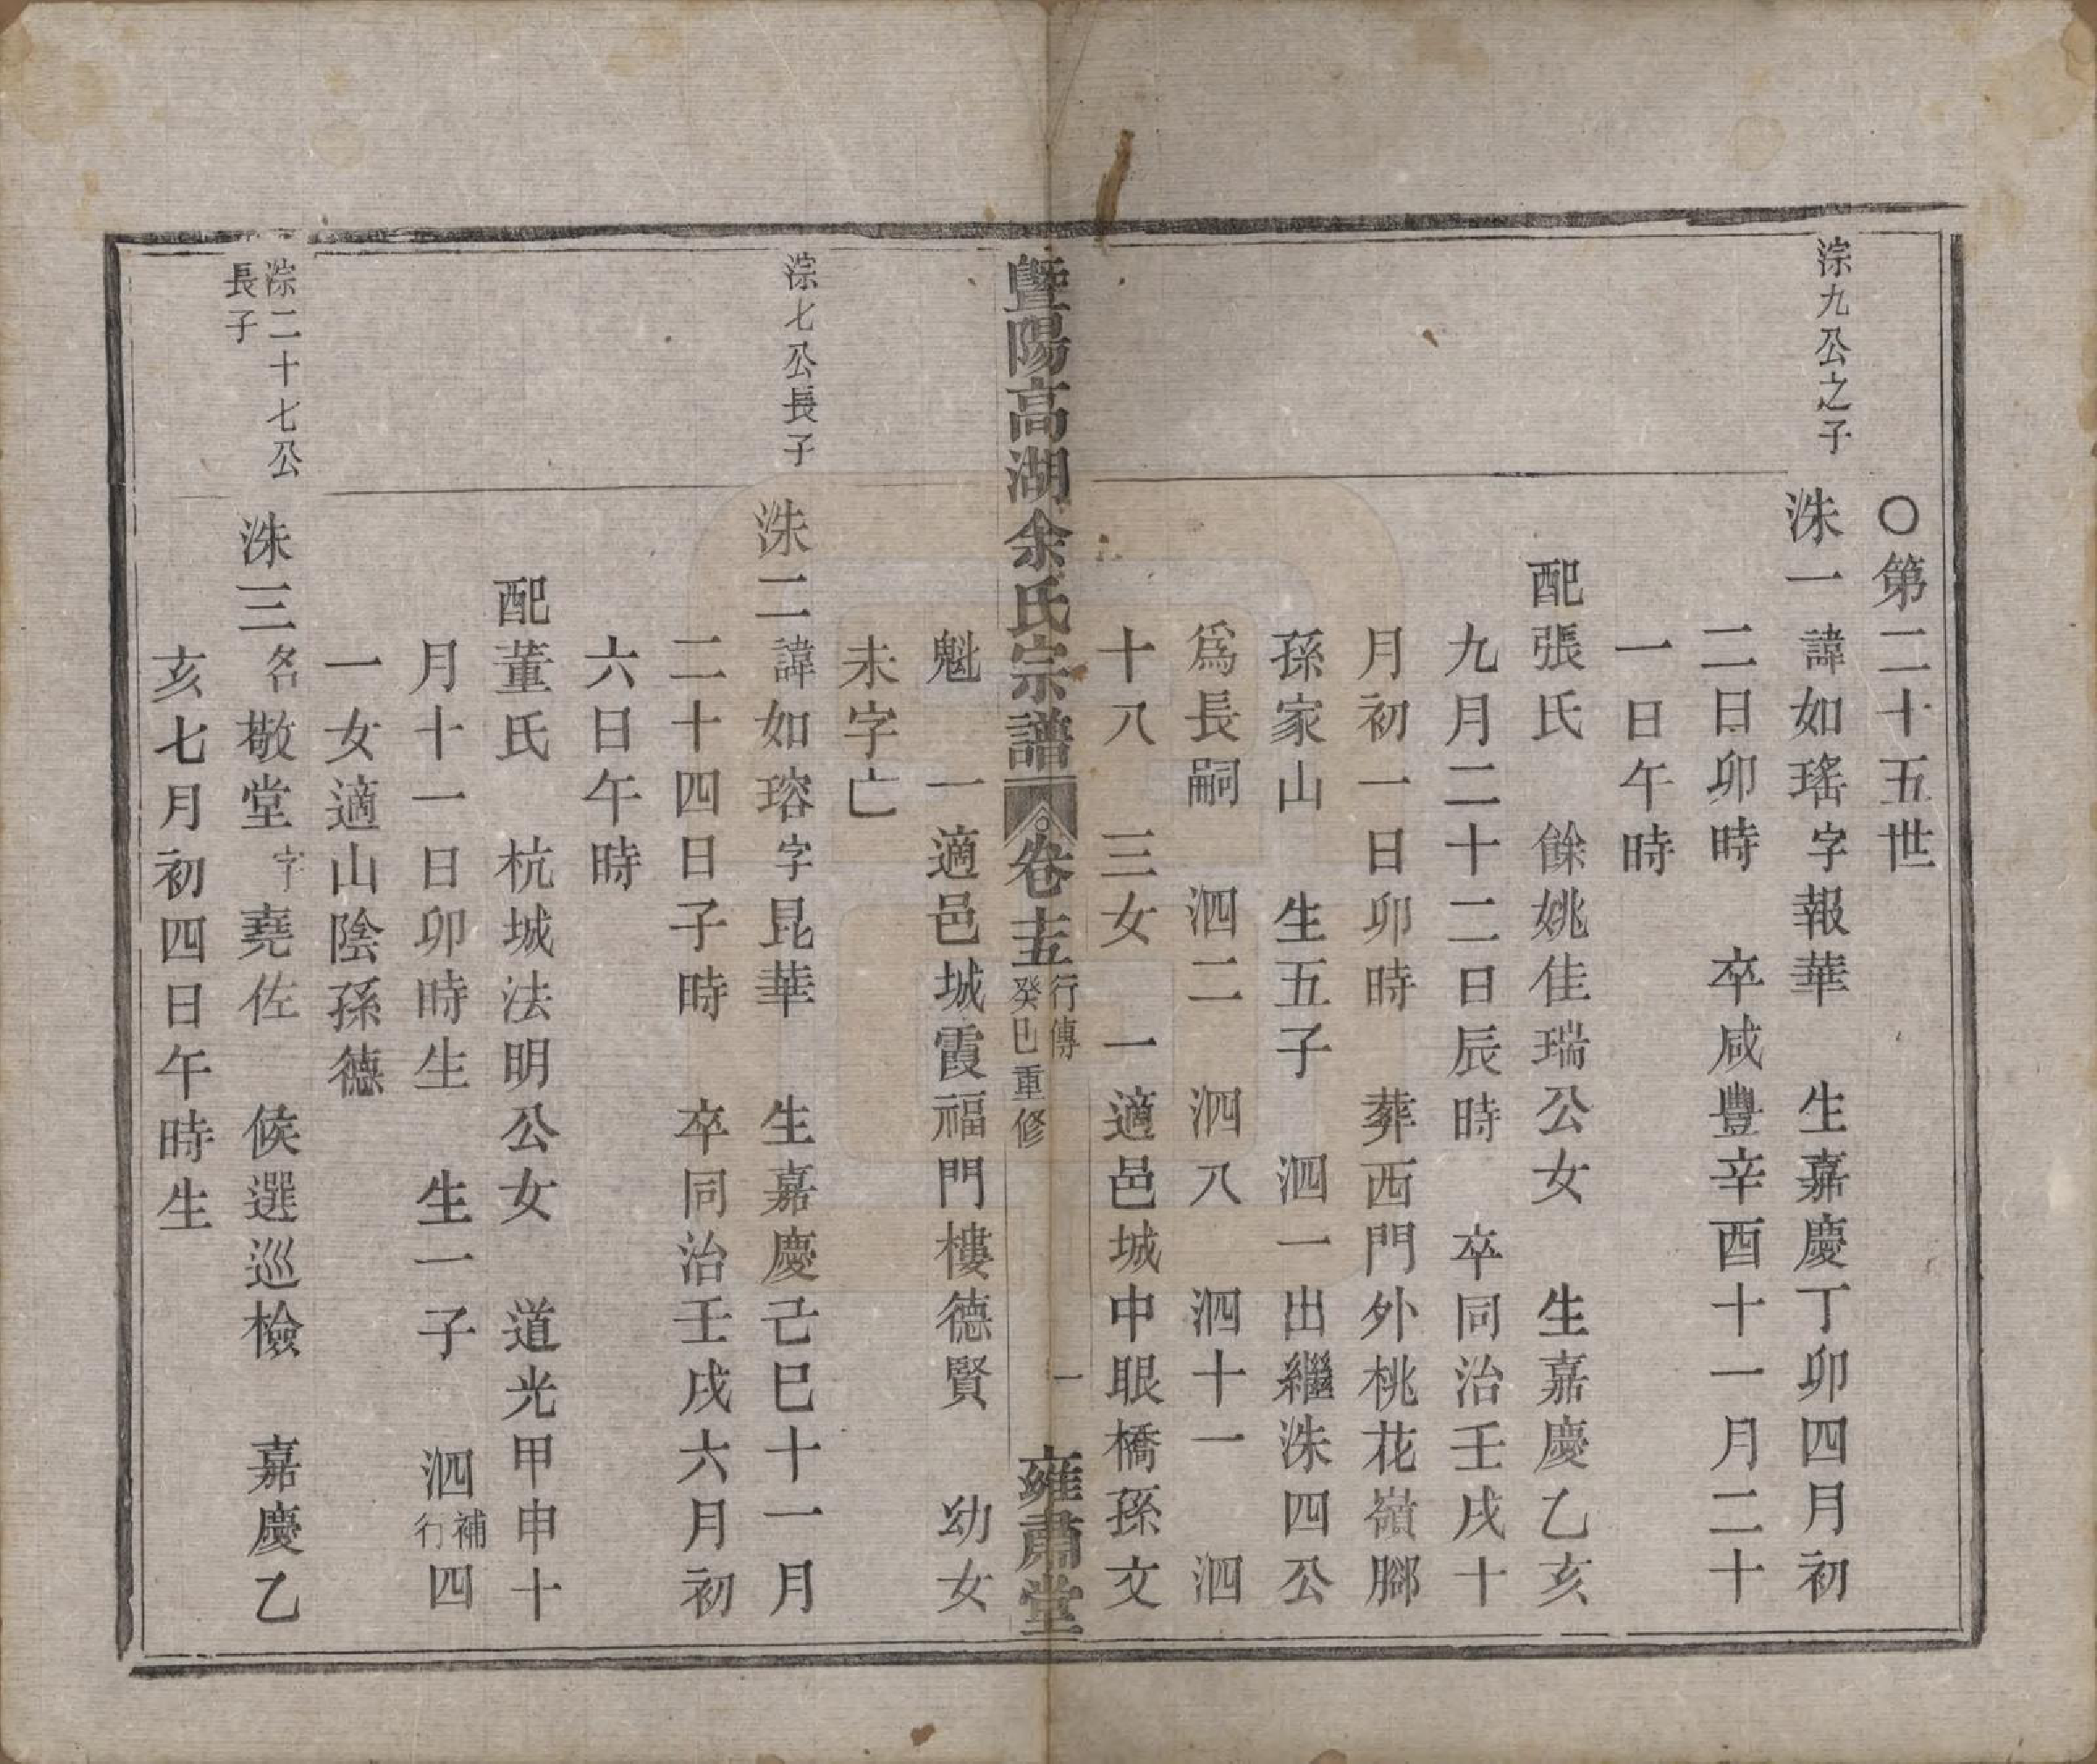 〇第二十五世
淙九公之子
洙一諱如瑤字報華　生嘉慶丁卯四月初
二日卯時　卒咸豐辛酉十一月二十
一日午時
配張氏　餘姚佳瑞公女　生嘉慶乙亥
九月二十二日辰時　卒同治壬戌十
月初一日卯時　葬西門外桃花嶺腳
孫家山　生五子　泗一出繼洙四公
爲長嗣　泗二　泗八　泗十一　泗
十八　三女　一適邑城中眼橋孫文
暨陽高湖余氏宗譜　卷十五　行傳　癸巳重修　一　雍肅堂
魁　一適邑城霞福門樓德賢　幼女
未字亡
淙七公長子
洙二諱如瑢字昆華　生嘉慶己巳十一月
二十四日子時　卒同治壬戌六月初
六日午時
配董氏　杭城法明公女　道光甲申十
月十一日卯時生　生一子　泗補行四
一女適山陰孫德
淙二十七公
長子
洙三名敬堂字堯佐　候選巡檢　嘉慶乙
亥七月初四日午時生